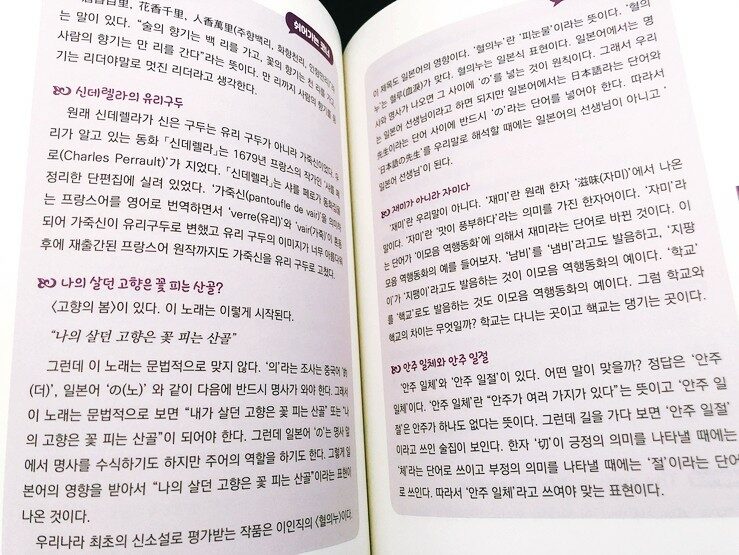 酒香百里, 花香千里, 人香萬里(주향백리, 화향천리, 인향만리)라
는 말이 있다. “술의 향기는 백 리를 가고, 꽃의 향기는 천 리를 가고,
사람의 향기는 만 리를 간다”라는 뜻이다. 만 리까지 사람의 향기를
기는 리더야말로 멋진 리더라고 생각한다.
신데렐라의 유리구두
원래 신데렐라가 신은 구두는 유리 구두가 아니라 가죽신이었다. 우
리가 알고 있는 동화 「신데렐라」는 1679년 프랑스의 작가인 샤를 페
로(Charles Perrault)’가 지었다. 「신데렐라」는 샤를 페로가 동화집을
정리한 단편집에 실려 있었다. ‘가죽신(pantoufle de vair)’을 의미하
는 프랑스어를 영어로 번역하면서 ‘verre(유리)’와 ‘vair(가죽)’이 혼동
되어 가죽신이 유리구두로 변했고 유리 구두의 이미지가 너무 아름다워
후에 재출간된 프랑스어 원작까지도 가죽신을 유리구두로 고쳤다.
나의 살던 고향은 꽃 피는 산골?
〈고향의 봄〉이 있다. 이 노래는 이렇게 시작된다.
“나의 살던 고향은 꽃 피는 산골”
그런데 이 노래는 문법적으로 맞지 않다. ‘의’라는 조사는 중국어 ‘的
(더)’, 일본어 ‘の(노)’ 와 같이 다음에 반드시 명사가 와야 한다. 그래서
이 노래는 문법적으로 보면 “내가 살던 고향은 꽃 피는 산골” 또는 “나
의 고향은 꽃 피는 산골”이 되어야 한다. 그런데 일본어 ‘の’는 명사 앞
에서 명사를 수식하기도 하지만 주어의 역할을 하기도 한다. 그렇게 일
본어의 영향을 받아서 “나의 살던 고향은 꽃 피는 산골”이라는 표현이
나온 것이다.
우리나라 최초의 신소설로 평가받는 작품은 이인직의 〈혈의누〉이다.
쉬어가는 코너
이 제목도 일본어의 영향이다. ‘혈의누’란 ‘피눈물’이라는 뜻이다. ‘혈의
누’는 혈루(血淚)가 맞다. 혈의누는 일본식 표현이다. 일본어에서는 명
사와 명사가 나오면 그 사이에 ‘の’를 넣는 것이 원칙이다. 그래서 우리
는 일본어 선생님이라고 하면 되지만 일본어에서는 日本語라는 단어와
先生이라는 단어 사이에 반드시 ‘の’라는 단어를 넣어야 한다. 따라서
‘日本語の先生’를 우리말로 해석할 때에는 일본어의 선생님이 아니고 ‘
일본어 선생님’이 된다.
재미가 아니라 자미다
‘재미’란 우리말이 아니다. ‘재미’란 원래 한자 ‘滋味(자미)’에서 나온
말이다. ‘자미’란 ‘맛이 풍부하다’라는 의미를 가진 한자어이다. ‘자미’라
는 단어가 ‘이모음 역행동화’에 의해서 재미라는 단어로 바뀐 것이다. 이
모음 역행동화의 예를 들어보자. ‘남비’를 ‘냄비’라고도 발음하고, ‘지팡
이’가 ‘지팽이’라고도 발음하는 것이 이모음 역행동화의 예이다. ‘학교’
를 ‘핵교’로도 발음하는 것도 이모음 역행동화의 예이다. 그럼 학교와
핵교의 차이는 무엇일까? 학교는 다니는 곳이고 핵교는 댕기는 곳이다.
안주 일체와 안주 일절
‘안주 일체’와 ‘안주 일절’이 있다. 어떤 말이 맞을까? 정답은 ‘안주
일체’이다. ‘안주 일체’란 “안주가 여러 가지가 있다”는 뜻이고 ‘안주 일
절’은 안주가 하나도 없다는 뜻이다. 그런데 길을 가다 보면 ‘안주 일절’
이라고 쓰인 술집이 보인다. 한자 ‘切’이 긍정의 의미를 나타낼 때에는 ‘
체’라는 단어로 쓰이고 부정의 의미를 나타낼 때에는 ‘절’이라는 단어
로 쓰인다. 따라서 ‘안주 일체’라고 쓰여야 맞는 표현이다.